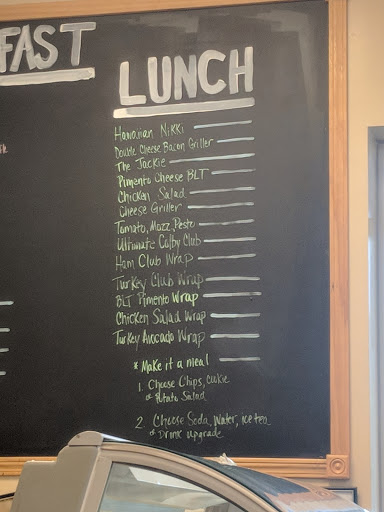 FAST
LUNCH
Hawaiian Nikki
Double Cheese Bacon Griller
The Jackie
Pimento Cheese BLT
Chicken Salad
Cheese Griller
Tomato, Mozz, Pesto
Ultimate Colby Club
Ham Club Wrap
Turkey Club Wrap
BLT Pimento Wrap
Chicken Salad Wrap
Turkey Avocado Wrap
* Make it a meal
1. Choose Chips, cookie
or Potato Salad
2. Choose Soda, Water, ice tea
or Drink upgrade